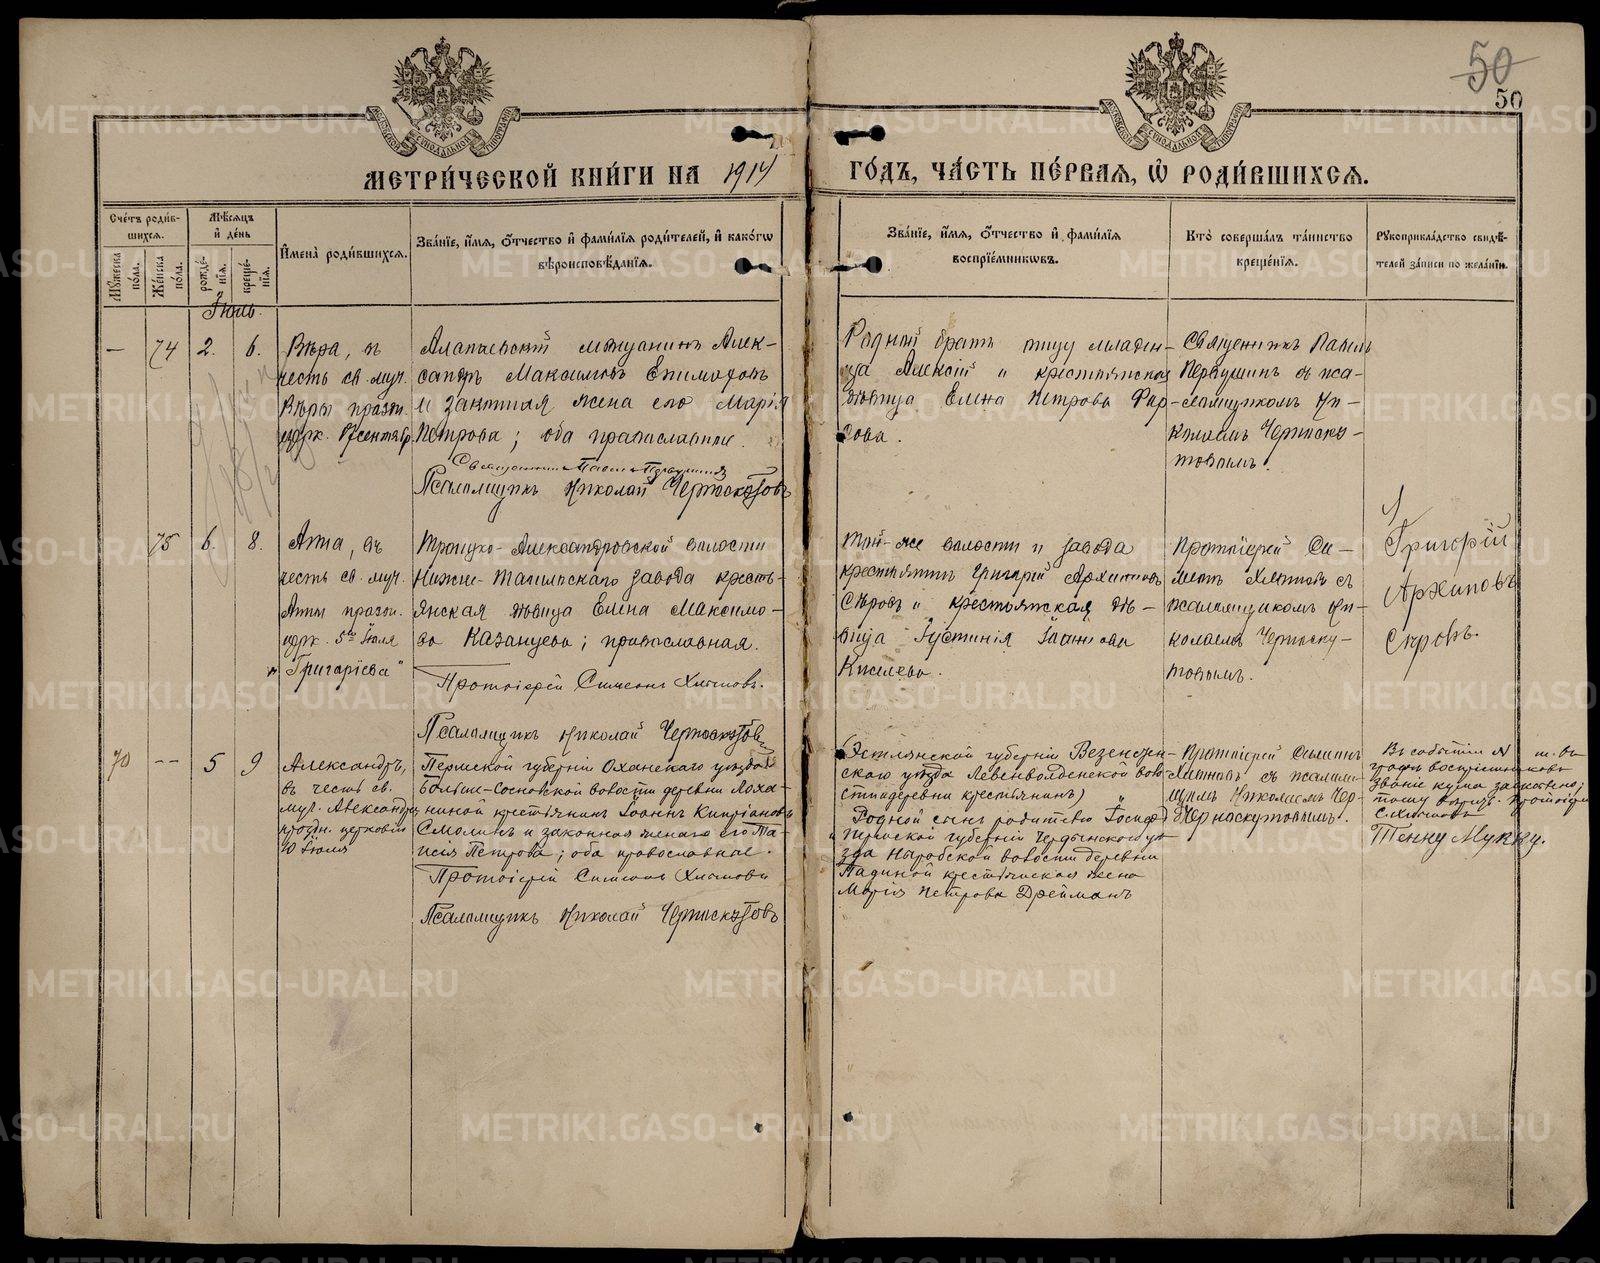 50
50
МЕТРИ́ЧЕСКОЙ КНИ́ГИ НА 1914 ГО́ДЪ, ЧА́СТЬ ПЕ́РВАЯ, Ѡ҆ РОДИ́ВШИХСЯ.
Сче́тъ роди́в-
шихся.
Мѣ́сяцъ
и҆ де́нь
Мꙋ́жеска по́ла.
Же́нска по́ла.
рожде́-нїя.
креще́-нїя.
И҆мена̀ роди́вшихся.
Зва́нїе, и҆́мя, ѻ҆́тчество и҆ фами́лїя роди́телей, и҆ како́гѡ
вѣроисповѣ́данїя.
Зва́нїе, и҆́мя, ѻ҆́тчество и҆ фами́лїя
воспрїе́мникѡвъ.
Кто̀ соверша́лъ та́инство
креще́нїя.
Рꙋкоприкла́дство свидѣ́-
телей за́писи по жела́нїи.
Іюль.
— 74 2. 6.
Вѣра, въ
честь св. муч.
Вѣры празд.
церк. 17 сентяб.
Алапаевскій мѣщанинъ Алек-
сандръ Максимовъ Епимаховъ
и законная жена его Марія
Петрова; оба православные.
Священникъ Павелъ Первушинъ
Псаломщикъ Николай Черноскутовъ
Родной братъ отцу младен-
ца Алексій и крестьянская
дѣвица Елена Петрова Фир-
сова.
Священникъ Павелъ
Первушинъ съ пса-
ломщикомъ Ни-
колаемъ Черноску-
товымъ.
75 6. 8.
Анна, въ
честь св. муч.
Анны празд.
церк. 5го Іюля
"Григоріева"
Троицко-Александровской волости
Нижне-Тагильскаго завода кресть-
янская дѣвица Елена Максимо-
ва Казанцева; православная.
Протоіерей Симеонъ Хлыновъ.
Псаломщикъ Николай Черноскутовъ
Той-же волости и завода
крестьянинъ Григорій Архиповъ
Сѣровъ и крестьянская дѣ-
вица Іустинія Іоаннова
Киселева.
Протоіерей Си-
меонъ Хлыновъ съ
псаломщикомъ Ни-
колаемъ Черноску-
товымъ.
Григорій
Архиповъ
Сѣровъ.
70 -- 5 9
Александръ,
въ честь св.
муч. Александра
праздн. церковью
10 Іюля
Пермской губерніи Оханскаго уѣзда
Больше-Сосновской волости деревни Лоха-
ниной крестьянинъ Іоаннъ Кипріановъ
Смолинъ и законная жена его Та-
исія Петрова; оба православные.
Протоіерей Симеонъ Хлыновъ
Псаломщикъ Николай Черноскутовъ
(Эстлянской губерніи Везенберг-
скаго уѣзда Левенвольденской воло-
сти деревни крестьянинъ)
Родной сынъ родителю Іосифъ
и Пермской губерніи Чердынскаго уѣ-
зда Ныробской волости деревни
Падиной крестьянская жена
Марія Петрова Дрейманъ
Протоіерей Симеонъ
Хлыновъ съ псалом-
щикомъ Николаемъ Чер-
Черноскутовымъ.
графѣ воспріемниковъ
званіе кума
Протоіерей
С. Хлыновъ
METRIKI.GASO-URAL.RU